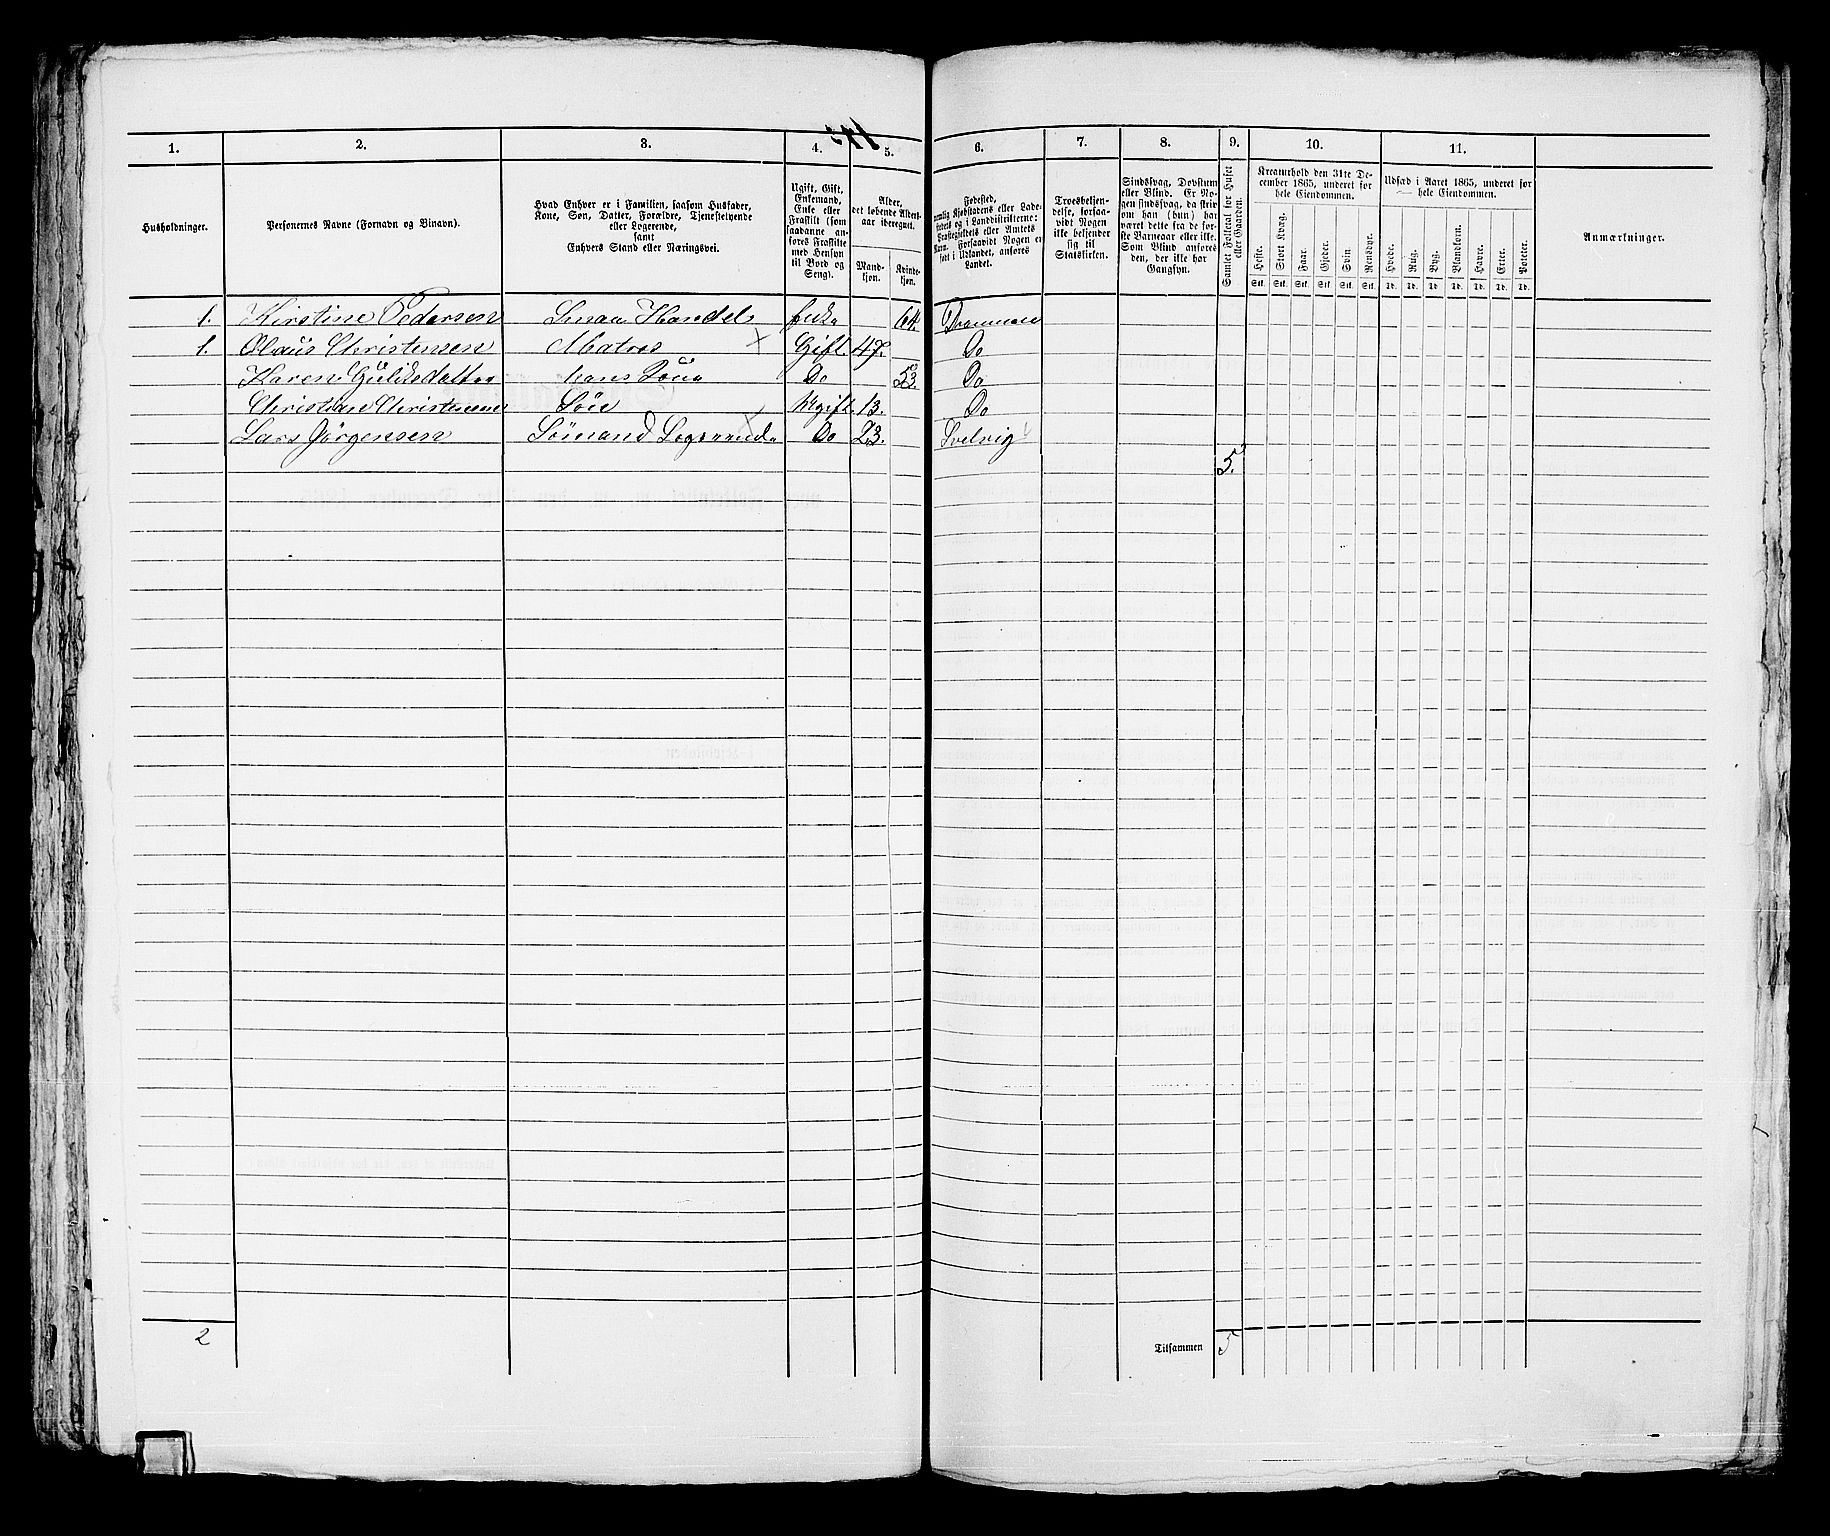 1. 2. 3. 4. 5. 6. 7. 8. 9. 10. 11.
Husholdninger.
Personernes Navne (Fornavn og Binavn).
Hvad Enhver er i Familien, saasom Husfader,
Kone, Søn, Datter, Forældre, Tjenestetyende
eller Logerende,
samt
Enhvers Stand eller Næringsvei.
Ugift, Gift,
Enkemand,
Enke eller
Fraskilt (som
saadanne an-
føres Fraskilte
med Hensyn
til Bord og
Seng).
Alder,
det løbende Alders-
aar iberegnet.
Mand-
kjøn.
Kvinde-
kjøn.
Fødested,
nemlig Kjøbstadens eller Lade-
stedets og i Landdistrikterne:
Præstegjeldets eller Amtets
Navn. Forsaavidt Nogen er
født i Udlandet, anføres
Landet.
Troesbekjen-
delse, forsaa-
vidt Nogen
ikke bekjender
sig til
Statskirken.
Sindssvag, Døvstum
eller Blind. Er No-
gen sindssvag, da skriv
om han (hun) har
været dette fra de før-
ste Barneaar eller ikke.
Som Blind anføres
den, der ikke har
Gangsyn.
Samlet Folketal for Huset
eller Gaarden.
Kreaturhold den 31te De-
cember 1865, underet for
hele Eiendommen.
Heste. Stort Kvæg. Faar. Gjeder. Svin. Rensdyr.
Stk. Stk. Stk. Stk. Stk. Stk.
Udsæd i Aaret 1865, underet for
hele Eiendommen.
Hvede. Rug. Byg. Blandkorn. Havre. Erter. Poteter.
Td. Td. Td. Td. Td. Td. Td.
Anmærkninger.
1. Kirstine Pedersen Smaa Handel Enke 64. Drammen
1. Olaus Christensen Matros Gift. 47. Do
Karen Guliksdatter hans Kone Do 53. Do
Christian Christensen Søn Ugift. 13. Do
Lars Jørgensen Sømand Logerende Do 23. Svelvig
5.
2 Tilsammen 5